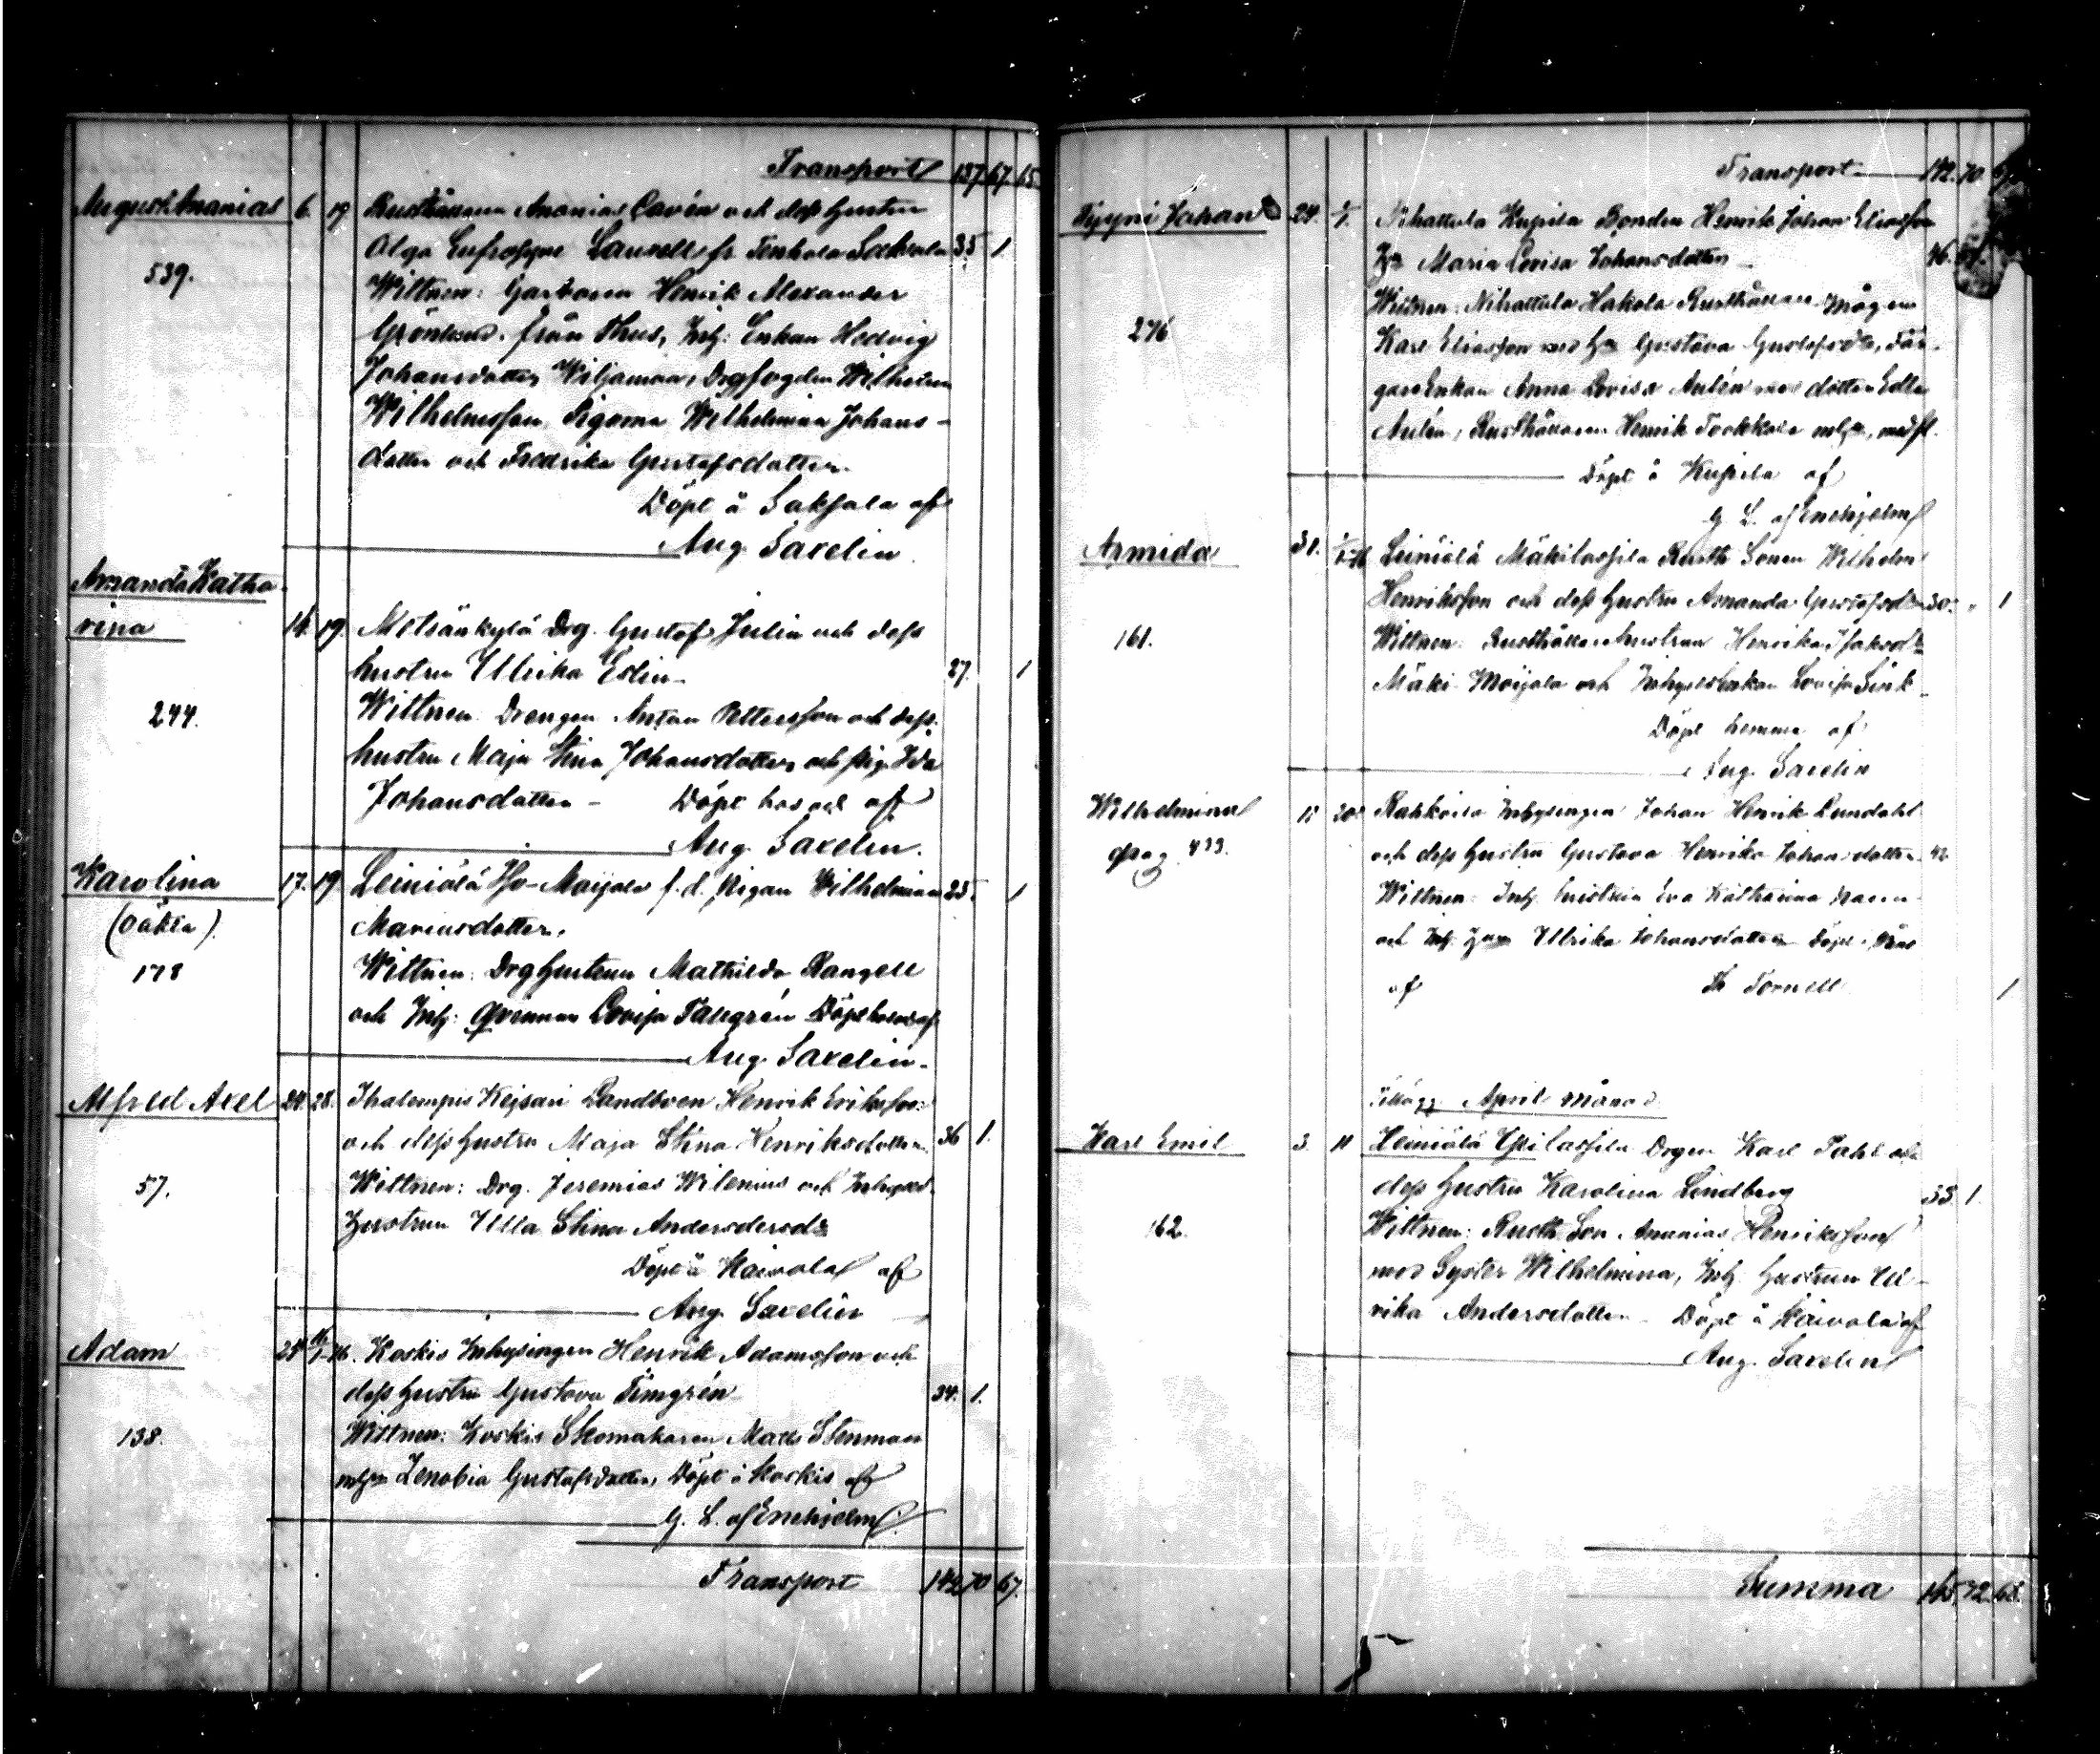 Transport 137 67 65
August Ananias 6. 19 Rusthållaren Ananias Cavén och dess hustru
Olga Eufrosyne Laurell fr. Tenhola Saksala 35 1
539.
Wittnen: Garfvaren Henrik Alexander
Grönlund från Thus, Inh: Enkan Hedvig
Johansdotter Wiljamaa, Drgfogden Wilhelm
Wilhelmsson Pigorna Wilhelmina Johans-
dotter och Fredrika Gustafsdotter.
Döpt å Saksala af
Aug. Saxelin
Amanda Katha-
rina 14. 19. Metsänkylä Drg. Gustaf Julin och dess
hustru Ullrika Edlin 27. 1
244.
Wittnen: Drengen Anton Pettersson och dess
hustru Maja Stina Johansdotter och pig. Ida
Johansdotter - Döpt hos od af
Aug. Saxelin.
Karolina 17. 19. Leiniälä Iso-Maijala f. d. Pigan Wilhelmina 25. 1
(oäkta)
178
Mariusdotter.
Wittnen: Drghustrun Mathilda Rangell
och Inh: Qvinnan Lovisa Tallgrén Döpt hos od af
Aug. Saxelin.
Alfred Axel 24. 28. Ihalempis Kejsari Landboen Henrik Eriksson
och dess hustru Maja Stina Henriksdotter 36 1.
57.
Wittnen: Drg. Jeremias Wilenius och Inhyses
hustrun Ulla Stina Andersdersdr
Döpt å Kaivola af
Aug. Saxelin
Adam 25 16/1-76. Koskis Inhysingen Henrik Adamsson och
dess hustru Gustava Timgrén 34. 1.
138.
Wittnen: Koskis Skomakaren Mats Stenman
m hn Zenobia Gustafsdotter, Döpt i Koskis af
G. L. af Enehjelm
Transport 142 70 67.
Transport 142. 70 67
Tyyni Johan 24. 2/1. Nihattula Kupila Bonden Henrik Johan Eliasson
Hu Maria Lovisa Johansdotter 46.
276
Wittnen: Nihattula Hakola Rusthållare Mågen
Karl Eliasson med Hu Gustava Gustafsdr, Fär-
gareEnkan Anna Lovisa Aulén med dotter Edla
Aulén, Rusthållaren Henrik Torkkala m hu, med fl.
Döpt å Kupila af
G. L. af Enehjelm
Armida 31. 1/1-76 Leiniälä Mäkilassila Rusth. Sonen Wilhelm
Henriksson och dess hustru Amanda Gustafsdr 30. 1
161.
Wittnen: Rusthållarehustrun Henrika Isaksdr
Mäki-Maijala och Inhyseskan Lovisa Sink
Döpt hemma af
Aug. Saxelin
Wilhelmina 15 20 Rahkoila Inhysingen Johan Henrik Lundahl
pag. 433. och dess hustru Gustava Henrika Johansdotter 42
Wittnen: Inh. hustrun Eva Katharina
och Inh. Hun Ullrika Johansdotter Döpt
af Fr Tornell 1
Tillägg April månad
Karl Emil 3. 11 Heiniälä Ylilassila Drgen Karl Tahl och
dess hustru Karolina Lindberg 33. 1.
162.
Wittnen: Rusth. Son Ananias Henriksson
med Syster Wilhelmina, Inh. hustrun Ul-
rika Andersdotter - Döpt å Kaivola af
Aug. Saxelin
Summa 145. 72. 68.